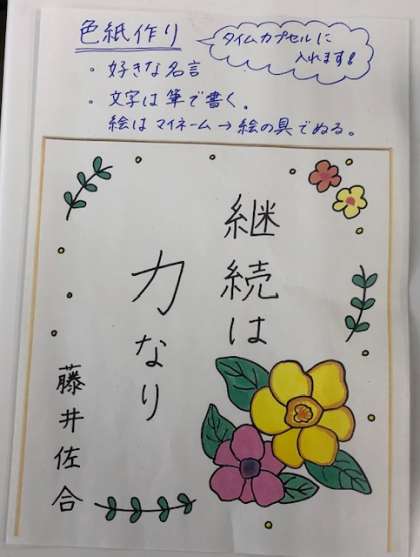 色紙作り
タイムカプセルに
入れます!
・好きな名言
・文字は筆で書く。
絵はマイネーム→絵の具でぬる。
継続は
力なり
藤井佐合